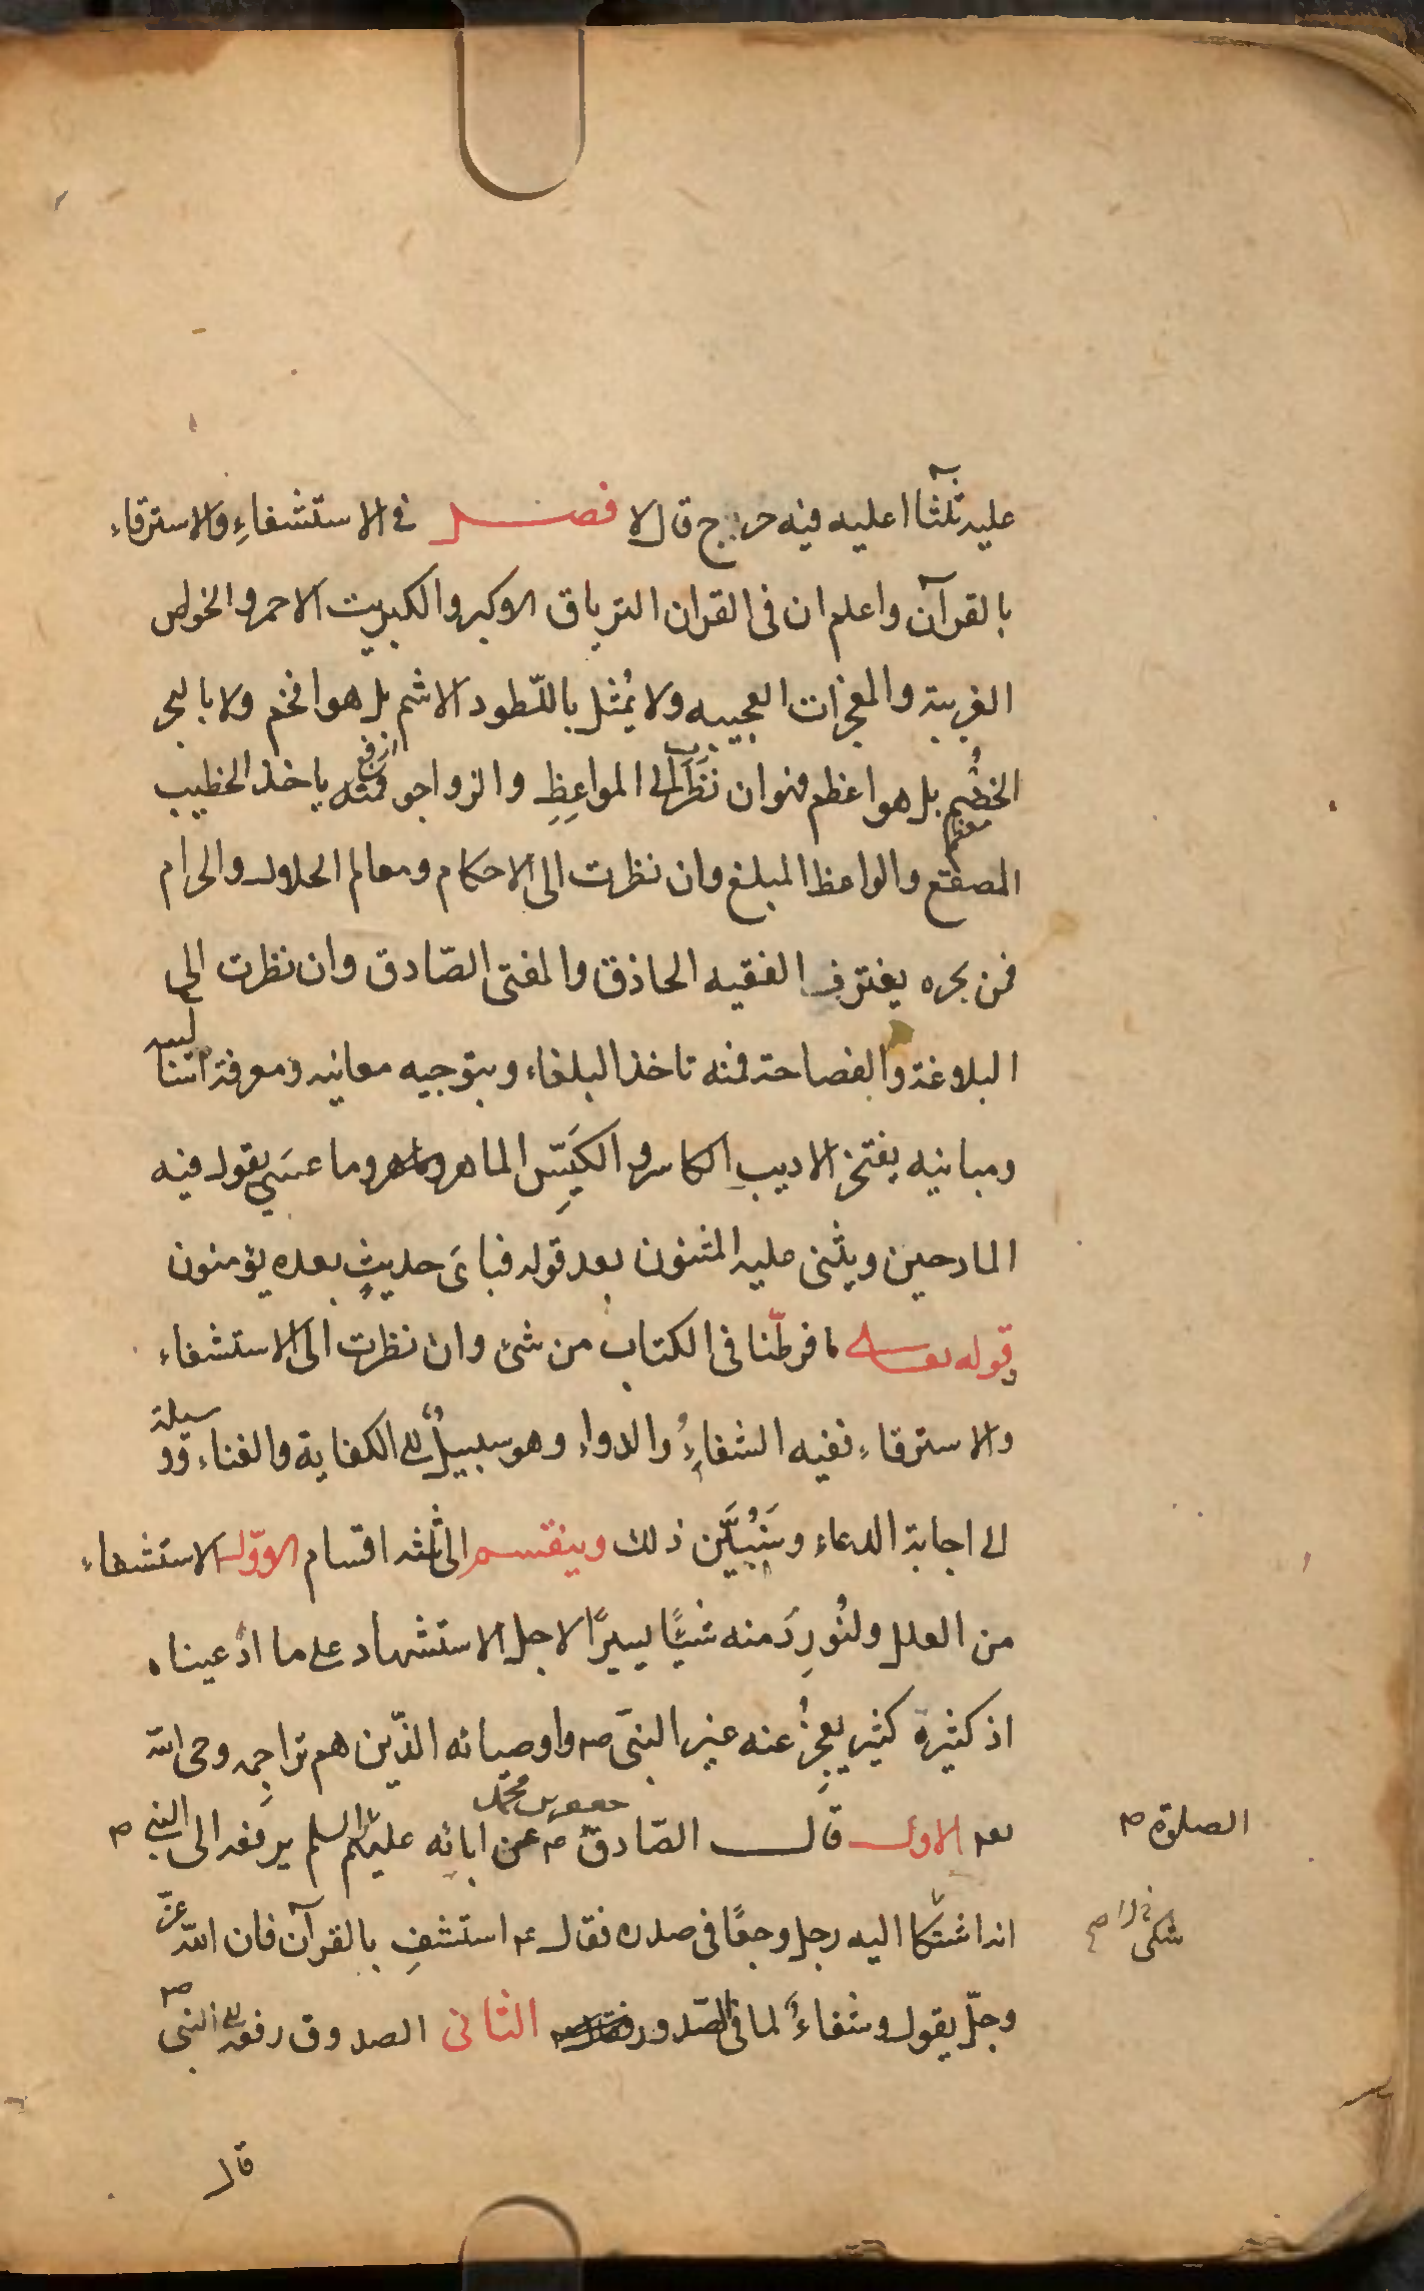 عليه ثلثا اعليه فيه حرج قال لا فصل في الاستشفاءِ والاسترقاء
بالقرآن واعلم ان فى القران الترياق الاكبر والكبريت الاحمر والخواص
الغريبة والمعجزات العجيبه ولا يُمثل بالطود الاشم بل هو افخم ولا بالبحر
الخضُم بل هو اعظم فهو ان نظَرتَ الى المواعِظِ والزواجر فمنه ياخذ الخطيب
المصقع والواعظ المبلغ وان نظرت الى الاحكام ومعالم الحلال والحرام
فمن بحره يغترف الفقيه الحاذق والمفتى الصّادق وان نظرت الى
البلاغة والفصاحة فمنه تاخذ البلغاء وبتوجيه معانيه ومعرفة اساليبه
ومبانيه يفتخر الاديب الكاسر والكيّسِ الماهر وما عسَي يقول فيه
المادحين ويثنى عليه المثنون بعد قوله فباىَ حديثٍ بعده يؤمنون
وقوله تعالى ما فرطّنا فى الكتاب من شئ وان نظرت الى الاستشفاء
والاسترقاء ففيه الشفاءُ والدواء وهو سبيلٌ الى الكفاية والغناء ووسيلة
الى اجابة الدعاء وسَنُبيَّن ذلك وينقسم الى ثلثه اقسام الاوّل الاستشفاء
من العلل ولنُورِدَ منه شيئًا يسيرًا لاجل الاستشهاد على ما ادّعيناه
اذ كثيرة كثير يعجِزُ عنه غير النبىّ ص واوصيائه الذّين هم تراجِمه وحى اللّه
نعم الاول قال الصّادق جعفر بن محمّد عن ابائه عليهم السلم يرفعه الى النبى ص
الصلوة ص
انه اشتكا اليه رجل وجعًا فى صدره فقال ع استشفِ بالقرآن فان اللّه عزّ
شكى
وجلّ يقول وشفاءٌ لما فى الصّدور الثانى الصدوق رفعه الى النبى ص
قال